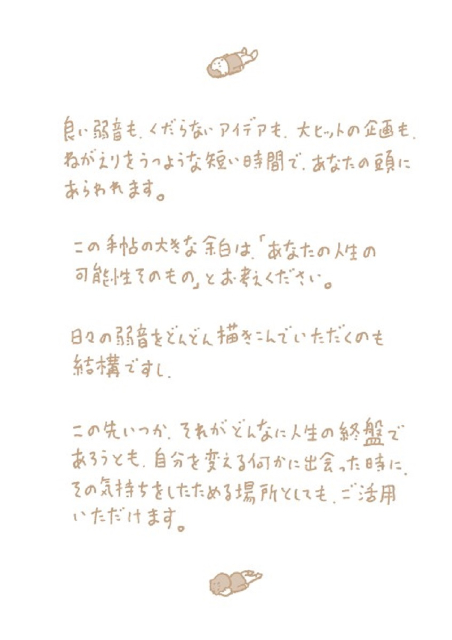 良い弱音も、くだらないアイデアも、大ヒットの企画も、
ねがえりをうつような短い時間で、あなたの頭に
あらわれます。
この手帖の大きな余白は、「あなたの人生の
可能性そのもの」とお考えください。
日々の弱音をどんどん描きこんでいただくのも
結構ですし、
この先いつか、それがどんなに人生の終盤で
あろうとも、自分を変える何かに出会った時に、
その気持ちをしたためる場所としても、ご活用
いただけます。